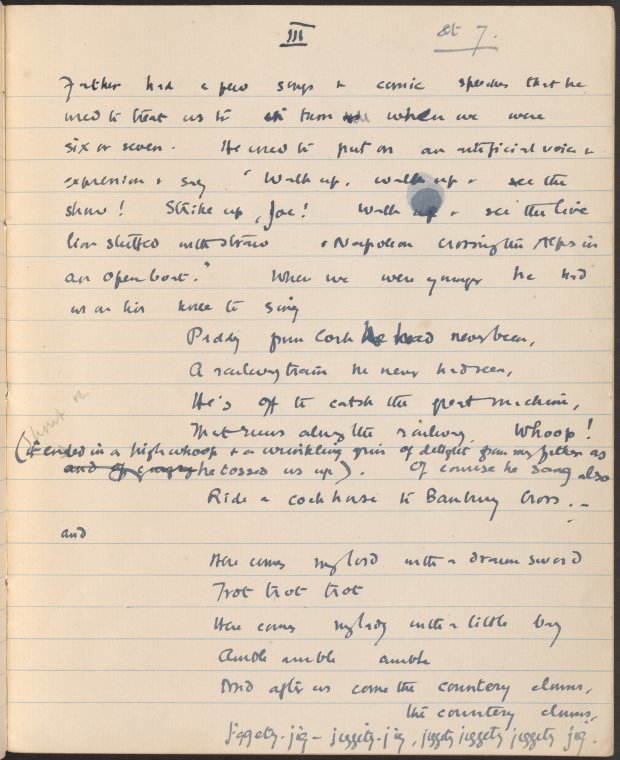 III
æt 7.
Father had a few songs & comic speeches that he
used to treat us to turn when we were
six or seven. He used to put on an artificial voice &
expression & say "Walk up, walk up & see the
show! Strike up, Joe! Walk up & see the live
lion stuffed with straw & Napoleon crossing the Alps in
an open boat." When we were younger he had
us on his knee to sing
Paddy from Cork he had never been,
A railway train he never had seen,
He's off to catch the great machine,
That runs along the railway. Whoop!
(it ended in a high whoop & a wrinkling grin of delight from my father as
he tossed us up). Of course he sang also
Ride a cock horse to Banbury Cross ..
and
Here comes my lord with a drawn sword
Trot trot trot
Here comes my lady with a little bag
Amble amble amble
And after us come the country clowns,
the country clowns,
Jiggety-jig - jiggety-jig, jiggety jiggety jiggety jig.